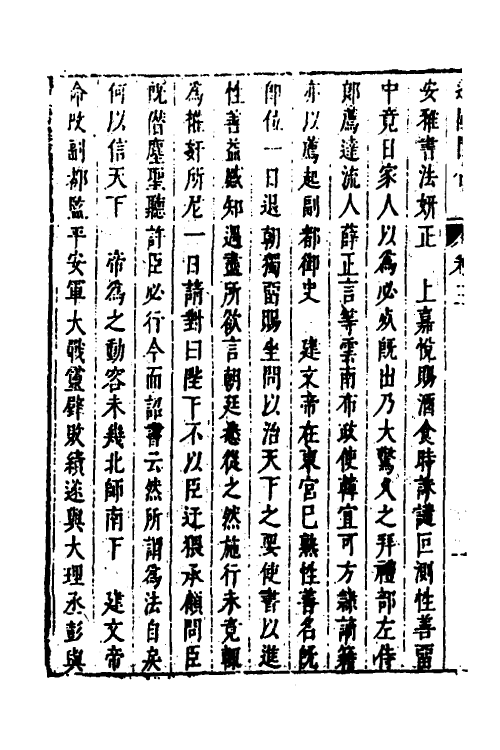 安雅書法妍正　上嘉悅賜酒食時誅譴叵測性善留
中竟日家人以為必死既出乃大驚久之拜禮部左侍
郎薦達流人薛正言等雲南布政使韓宜可方隸謫籍
亦以薦起副都御史　建文帝在東宮已熟性善名既
即位一日退朝獨留賜坐問以治天下之要使書以進
性善益感知遇盡所欲言朝廷悉從之然施行未竟輒
為權奸所尼一日請對曰陛下不以臣迂猥承顧問臣
既僭塵聖聽許臣必行今而詔書云然所謂為法自戾
何以信天下　帝為之動容未幾北師南下　建文帝
命改副都監平安軍大戰靈辟敗績遂與大理丞彭與